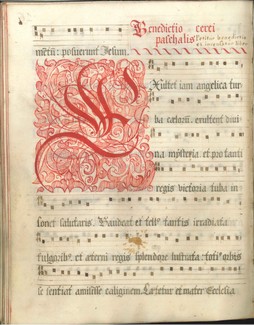 Benedictio cerei
paschalis
metū: posuerunt Iesum.
Xultet iam angelica tur
ba celorū. exultent diui
na mysteria. et pro tanti
regis victoria tuba in
sonet salutaris. Gaudeat et tantis irradiata
fulgoribꝰ: et eterni regis splendore lustrata: totiꝰ orbis
se sentiat amisisse caliginem. Letetur et mater Ecclesia